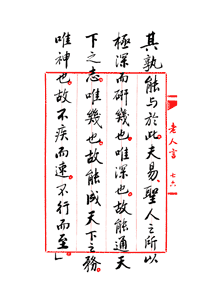 其孰能与於此夫易聖人之所以
極深而研幾也唯深也故能通天
下之志唯幾也故能成天下之務
唯神也故不疾而速不行而至」
老人言 七六